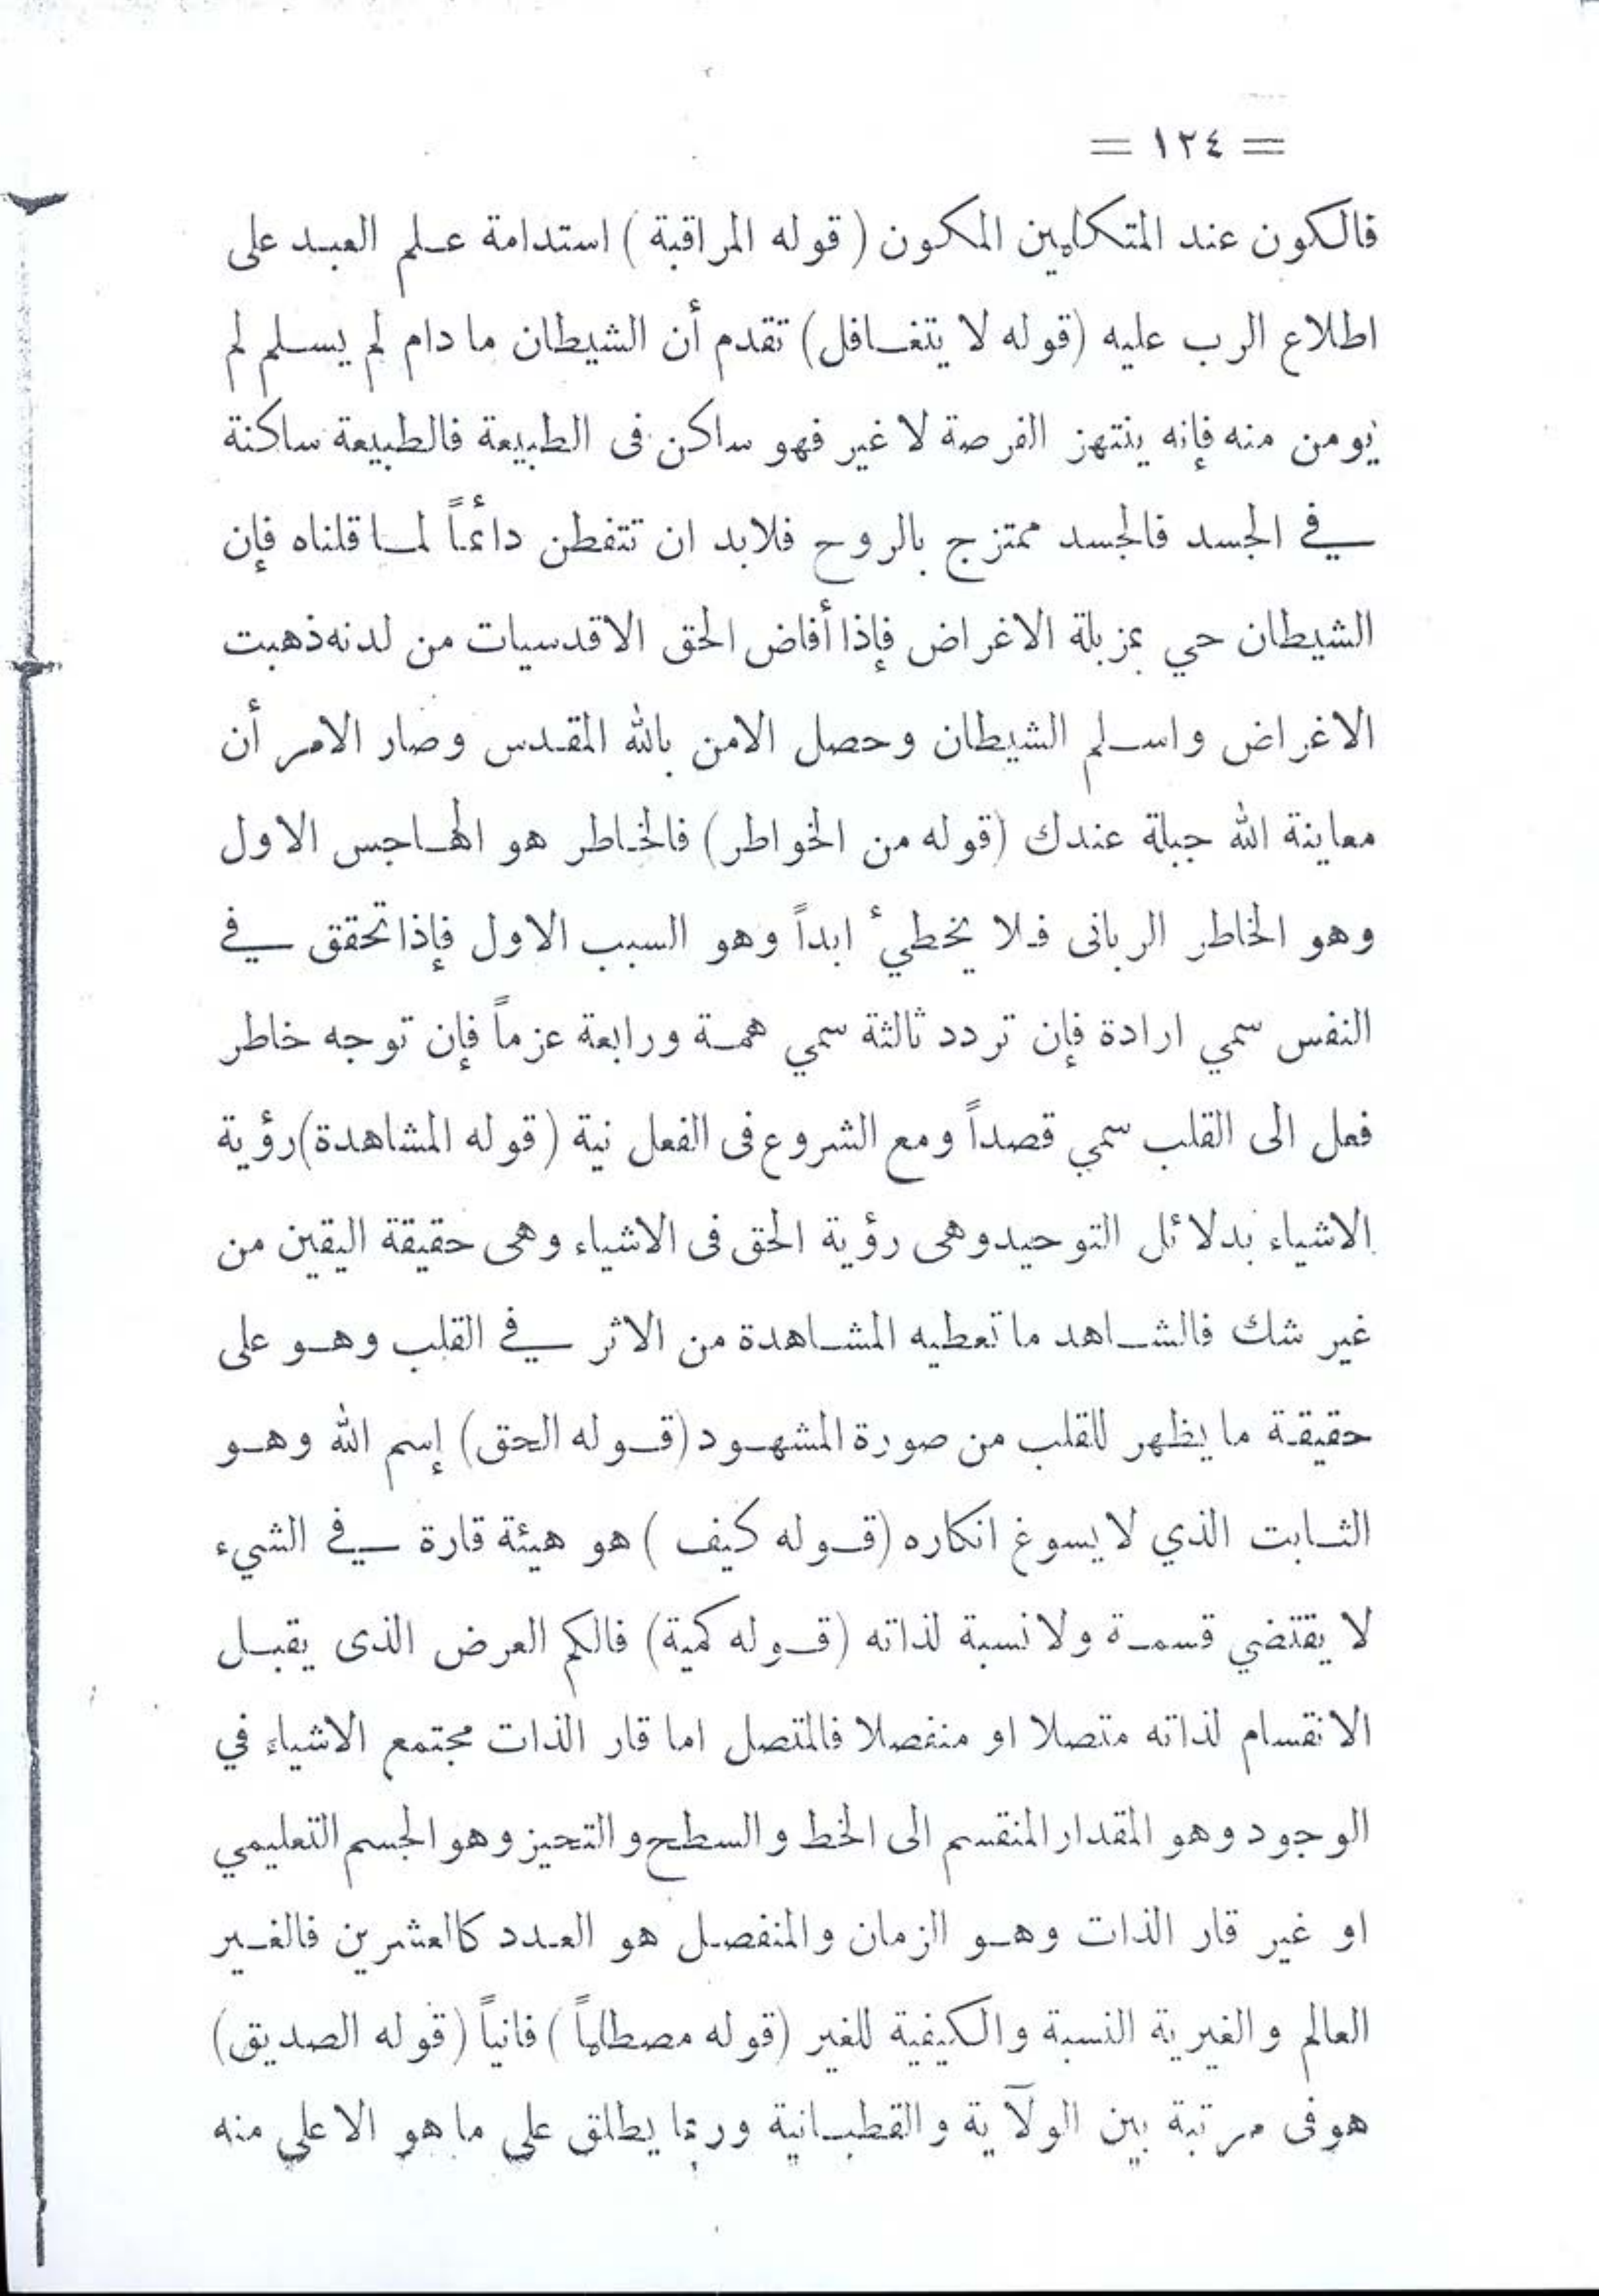 = ١٢٤ =
فالكون عند المتكلمين المكون ( قوله المراقبة ) استدامة علم العبد على
اطلاع الرب عليه (قوله لا يتغافل) تقدم أن الشيطان ما دام لم يسلم لم
يومن منه فإنه ينتهز الفرصة لا غير فهو ساكن فى الطبيعة فالطبيعة ساكنة
في الجسد فالجسد ممتزج بالروح فلابد ان تتفطن دائماً لما قلناه فإن
الشيطان حي بمزبلة الاغراض فإذا أفاض الحق الاقدسيات من لدنه ذهبت
الاغراض واسلم الشيطان وحصل الامن بالله المقدس وصار الامر أن
معاينة الله جبلة عندك (قوله من الخواطر) فالخاطر هو الهاجس الاول
وهو الخاطر الربانى فلا يخطيء ابداً وهو السبب الاول فإذا تحقق في
النفس سمي ارادة فإن تردد ثالثة سمي همة ورابعة عزماً فإن توجه خاطر
فعل الى القلب سمي قصداً ومع الشروع فى الفعل نية ( قوله المشاهدة) رؤية
الاشياء بدلائل التوحيد وهى رؤية الحق فى الاشياء وهى حقيقة اليقين من
غير شك فالشاهد ما تعطيه المشاهدة من الاثر في القلب وهو على
حقيقة ما يظهر للقلب من صورة المشهود (قوله الحق) إسم الله وهو
الثابت الذي لا يسوغ انكاره (قوله كيف ) هو هيئة قارة في الشيء
لا يقتضي قسمة ولا نسبة لذاته (قوله كمية) فالكم العرض الذى يقبل
الانقسام لذاته متصلا او منفصلا فالمتصل اما قار الذات مجتمع الاشياء في
الوجود وهو المقدار المنقسم الى الخط والسطح والتحيز وهو الجسم التعليمي
او غير قار الذات وهو الزمان والمنفصل هو العدد كالعشرين فالغير
العالم والغيرية النسبة والكيفية للغير (قوله مصطلماً ) فانياً (قوله الصديق)
هو فى مرتبة بين الولآية والقطبانية وربما يطلق على ما هو الاعلى منه